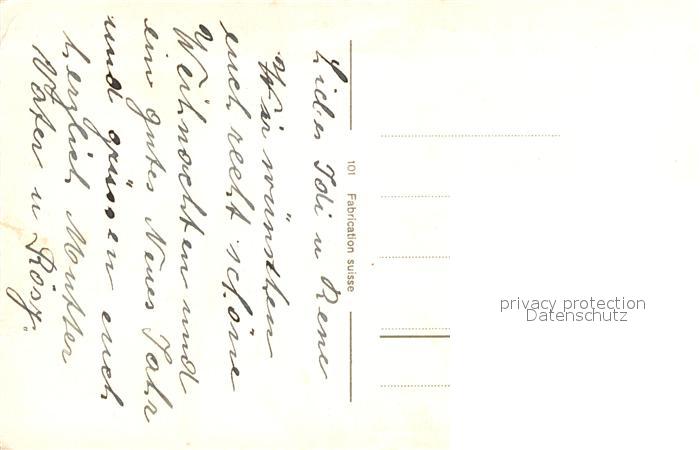 Liebes Idi u Rene
Wir wünschen
euch recht schöne
Weihnachten und
ein gutes Neues Jahr
und grüssen euch
herzlich Mutter
Vater u Rösy.
101 Fabrication suisse
privacy protection
Datenschutz